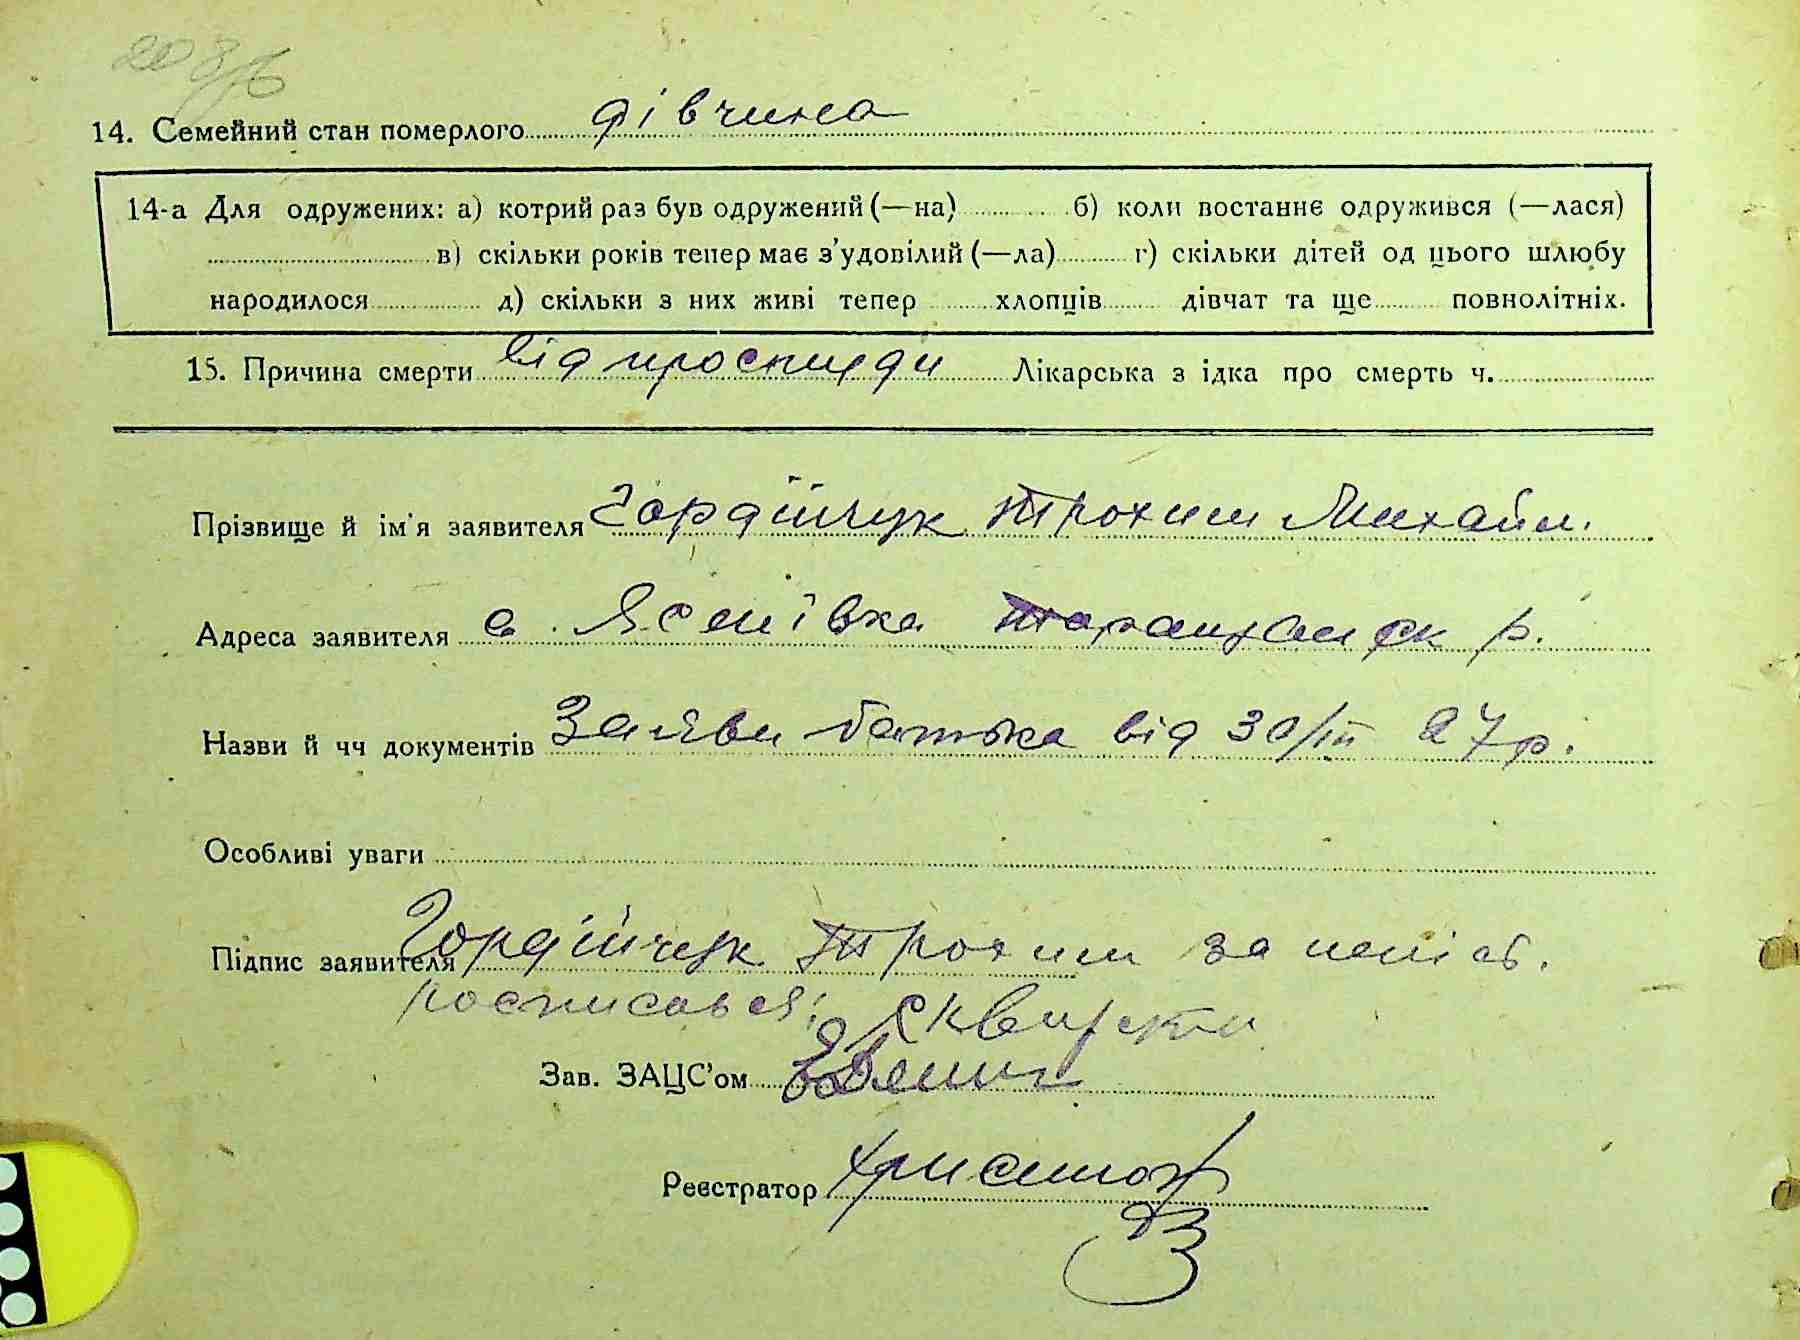 14. Семейний стан померлого дівчина
14-а Для одружених: а) котрий раз був одружений (—на) б) коли востаннє одружився (—лася)
в) скільки років тепер має з’удовілий (—ла) г) скільки дітей од цього шлюбу
народилося д) скільки з них живі тепер хлопців дівчат та ще повнолітніх.
15. Причина смерти від простуди Лікарська з ідка про смерть ч.
Прізвище й ім’я заявителя Гордійчук Трохим Михайл.
Адреса заявителя с. Ясенівка Таращанск р.
Назви й чч документів Заяви батька від 30/III 27 р.
Особливі уваги
Підпис заявителя Гордійчук Трохим за
росписався:
Зав. ЗАЦС’ом
Реєстратор